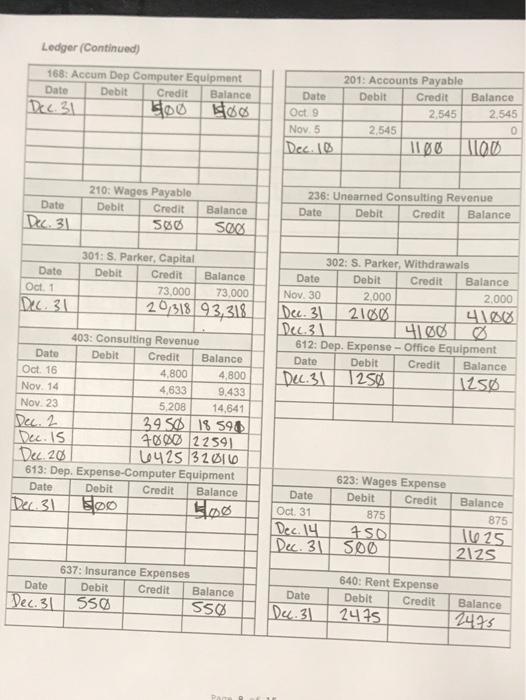 Ledger (Continued)
168: Accum Dep Computer Equipment
Date Debit Credit Balance
Dec. 31
210: Wages Payable
Date Debit Credit Balance
Dec. 31 500 500
301: S. Parker, Capital
Date Debit Credit Balance
Oct. 1 73,000 73,000
Dec. 31 20,318 93,318
403: Consulting Revenue
Date Debit Credit Balance
Oct. 16 4,800 4,800
Nov. 14 4,633 9,433
Nov. 23 5,208 14,641
Dec. 2 3950 18 591
Dec. 15 4000 22591
Dec. 20 6425 32016
613: Dep. Expense-Computer Equipment
Date Debit Credit Balance
Dec. 31
637: Insurance Expenses
Date Debit Credit Balance
Dec. 31 550 550
201: Accounts Payable
Date Debit Credit Balance
Oct. 9 2,545 2,545
Nov. 5 2,545 0
Dec. 10 1100 1100
236: Unearned Consulting Revenue
Date Debit Credit Balance
302: S. Parker, Withdrawals
Date Debit Credit Balance
Nov. 30 2,000 2,000
Dec. 31 2100 4100
Dec. 31 4100 0
612: Dep. Expense – Office Equipment
Date Debit Credit Balance
Dec. 31 1250 1250
623: Wages Expense
Date Debit Credit Balance
Oct. 31 875 875
Dec. 14 750 1625
Dec. 31 500 2125
640: Rent Expense
Date Debit Credit Balance
Dec. 31 2475 2475